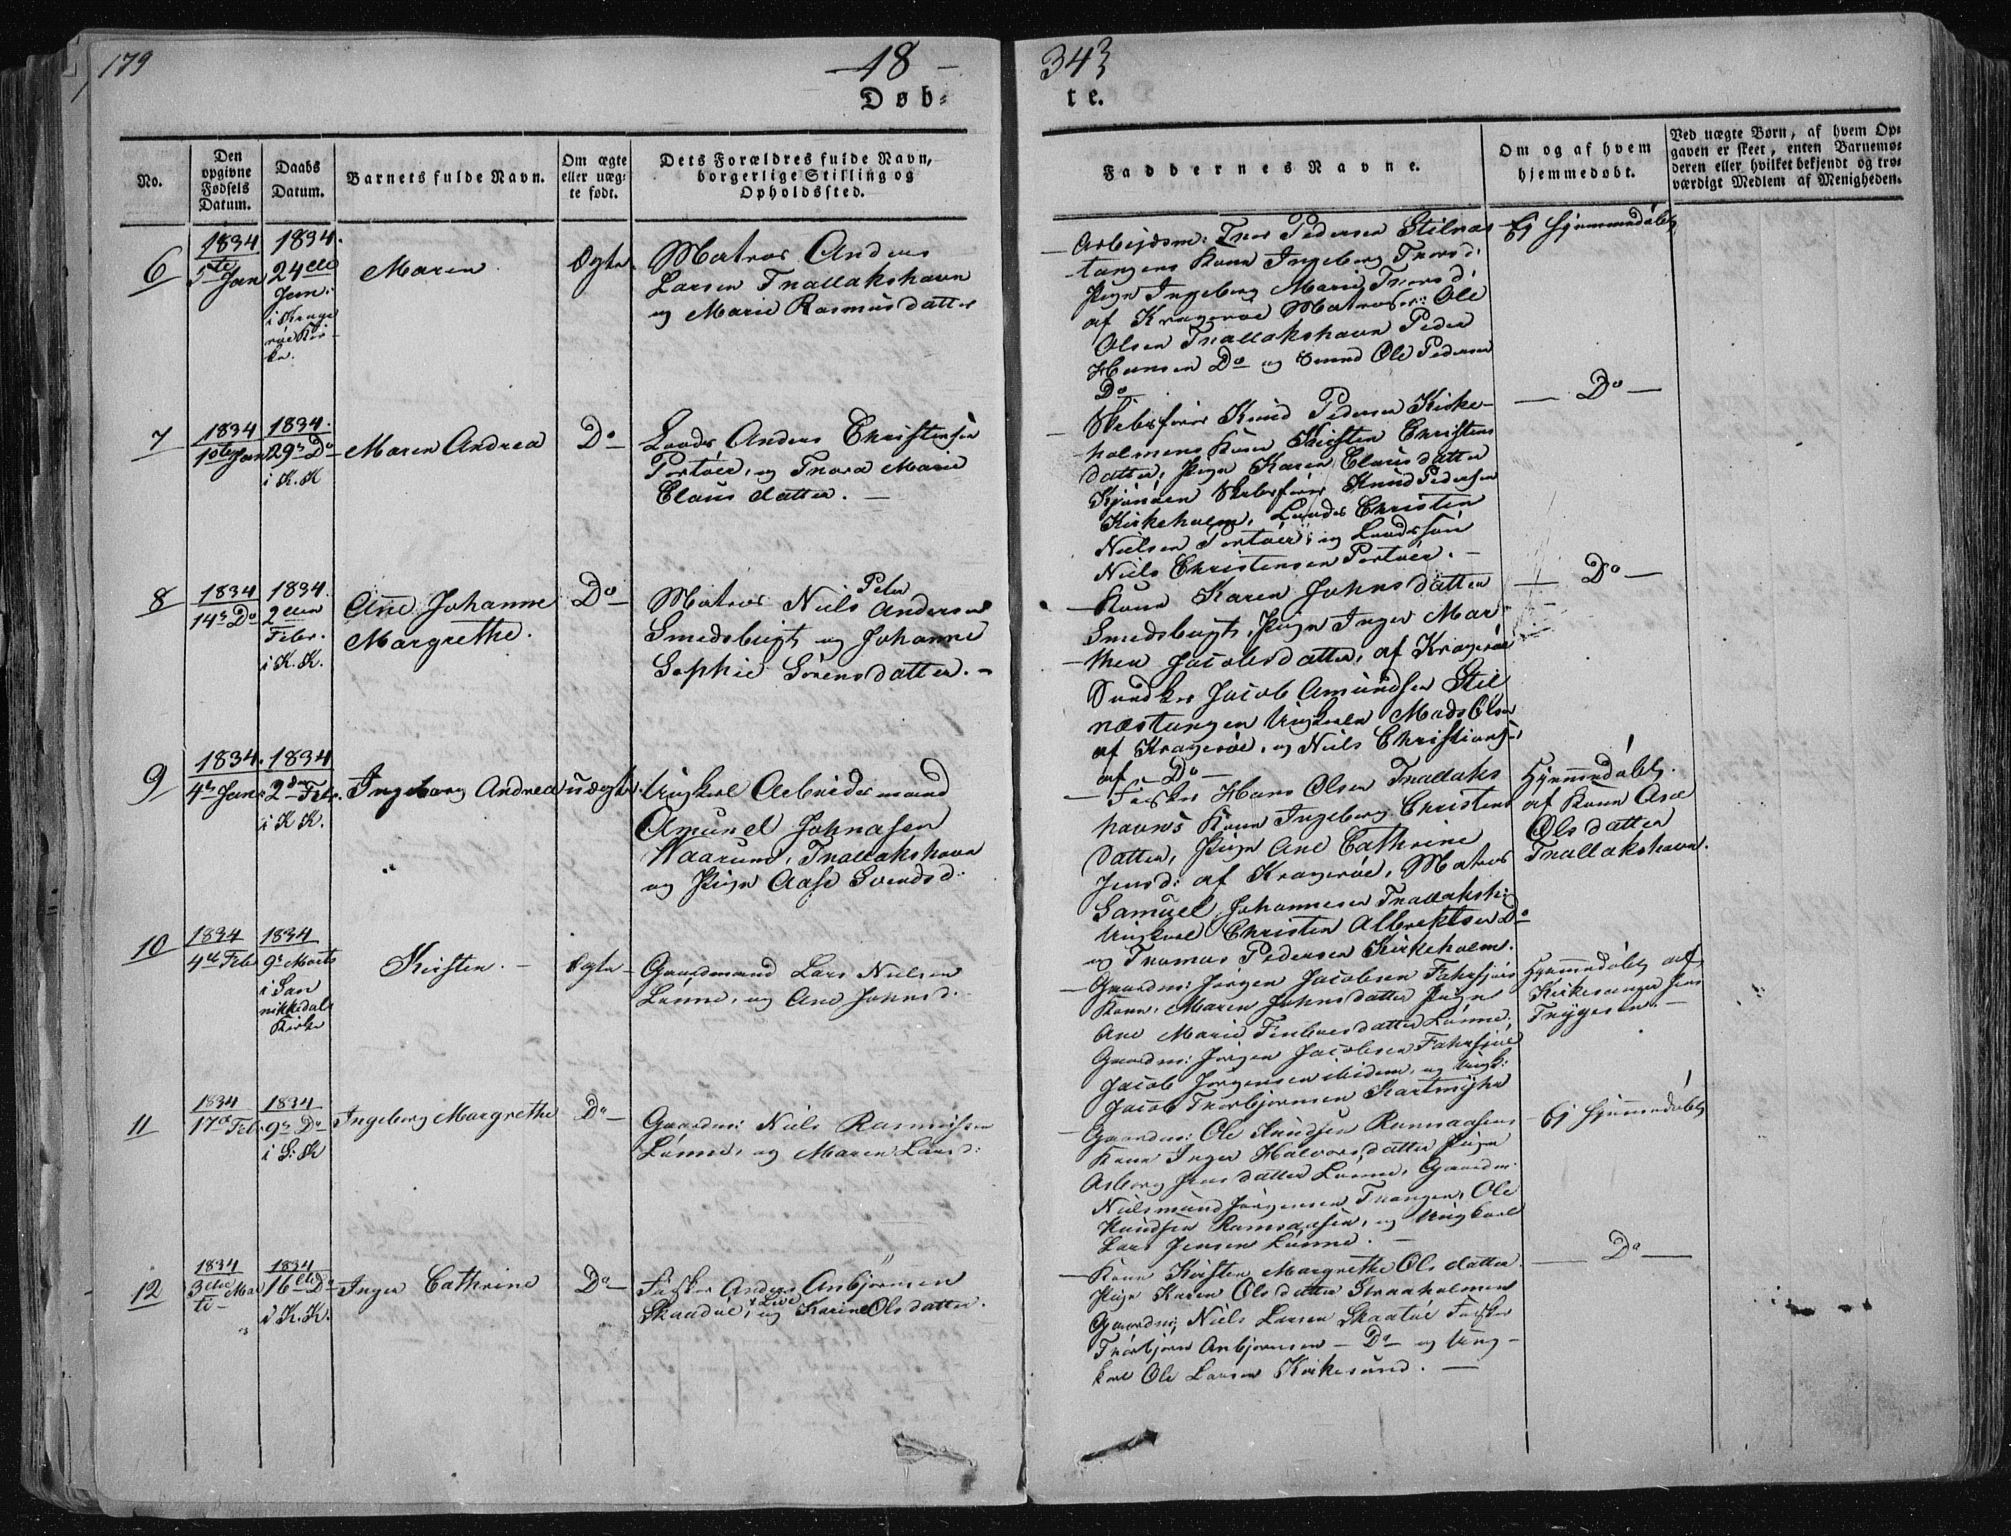 179
18
343
Døb=
te.
No.
Den opgivne Fødsels Datum.
Daabs Datum.
Barnets fulde Navn.
Om ægte eller uæg: te født.
Dets Forældres fulde Navn, borgerlige Stilling og Opholdssted.
Faddernes Navne.
Om og af hvem hjemmedøbt.
Ved uægte Børn, af hvem Op: gaven er skeet, enten Barnemo: deren eller hvilket bekjendt og tro: værdigt Medlem af Menigheden.
6
1834
5te Jan
1834.
24de
Jan:
i Krage
røe Kir
ke.
Maren
Ægte
Matros Anders
Larsen Tnallakshavn
og Marie Rasmusdatter
Arbejdsm: Thor Pedersen Stilnæs
tangens Kone Ingeborg Thorsd:
Pige Ingeborg Marie Thorsd:
af Kragerøe Matroser: Ole
Olsen Tnallakshavn Peder
Hansen Do og Svend Ole Pedersen
Do
Ej hjemmedøbt
7
1834
10te Jan
1834.
29de Do
i K. K
Maren Andrea
Do
Lods Anders Christensen
Portøer, og Thora Marie
Clausdatter. —
Skibsfører Knud Pedersen Kirke-
holmens Kone Kirsten Christens
datter, Pige Karen Clausdatter
Skibsfører Knud Pedersen
Kirkeholm, Lods Christen
Nielsen Portøer, og Lodssøn
Niels Christensen Portøer. —
— Do —
8
1834
14de Do
1834.
2den
Febr.
i K. K.
Ane Johanne
Margrethe.
Do
Matros Niels Peter Andersen
Smedsbugt og Johanne
Sophie Sörensdatter. —
Kone Karen Johnsdatter
Smedsbugt, Pige Inger Mar-
then Jacobsdatter, af Kragerøe
Jacob Amundsen Stil
næstangen Ungkarle Mads Olsen
af Kragerøe, og Niels Christians:
af — Do —
— Do —
9
1834.
4de Jan:
1834
2den Febr.
i K K.
Ingeborg Andrea
uægte
Ungkarl Arbeidsmand
Amund Johnasen
Waarum, Tnallakshavn
og Pige Aase Svendsd:
Fisker Hans Olsen Tnallaks
havns Kone Ingeborg Christens
datter, Pige Ane Cathrine
Jensd: af Kragerøe, Matros
Samuel Johannesen Tnallaksh:
Ungkarl Christen Albretsen Do
og Thomas Pedersen Kirkeholm.
Hjemmedøbt
af Kone Ase
Olsdatter
Tnallakshavn.
10
1834
4de Febr
1834
9de Marts
i San
nikkedals
Kirke
Kirsten. —
Ægte
Gaardmand Lars Nielsen
Lönne, og Ane Johnsd.
Gaardm: Jörgen Jacobsen Farsjøs
Kone, Maren Johnsdatter Pige
Ane Marie Lönne.
Gaardm: Jörgen Jacobsen Farsjøe
Jacob Jörgensen ibidem, og Ungk:
Jacob Thorbjörnsen Kartmyhr
Hjemmedøbt af
Kirkesanger Jens
Trygesen. —
11
1834
17de Febr.
1834
9de Do
i S. K
Ingeborg Margrethe
Do
Gaardm: Niels Rasmussen
Lönne, og Maren Larsd:
Gaardm: Ole Knudsen Ramsaasens
Kone Inger Halvorsdatter Pige
Asborg Jensdatter Lönne, Gaardm.
Nielsmund Jörgensen Tangen, Ole
Knudsen Ramsaasen, og Ungkarl
Lars Jensen Lönne. —
Ej hjemmedøbt
12
1834
3die Mar
ts
1834
16de Do
i K. K.
Inger Cathrine
Do
Fisker Anders Anbjörnsen
Skaadøe, og Karine Olsdatter.
Kone Kirsten Margrethe Olsdatter
Pige Karen Olsdatter Straaholmen
Gaardm: Niels Larsen Skaatøe Fisker
Thorbjörn Anbjörnsen — Do — og Ung-
karl Ole Larsen Kirkesund. —
— Do —